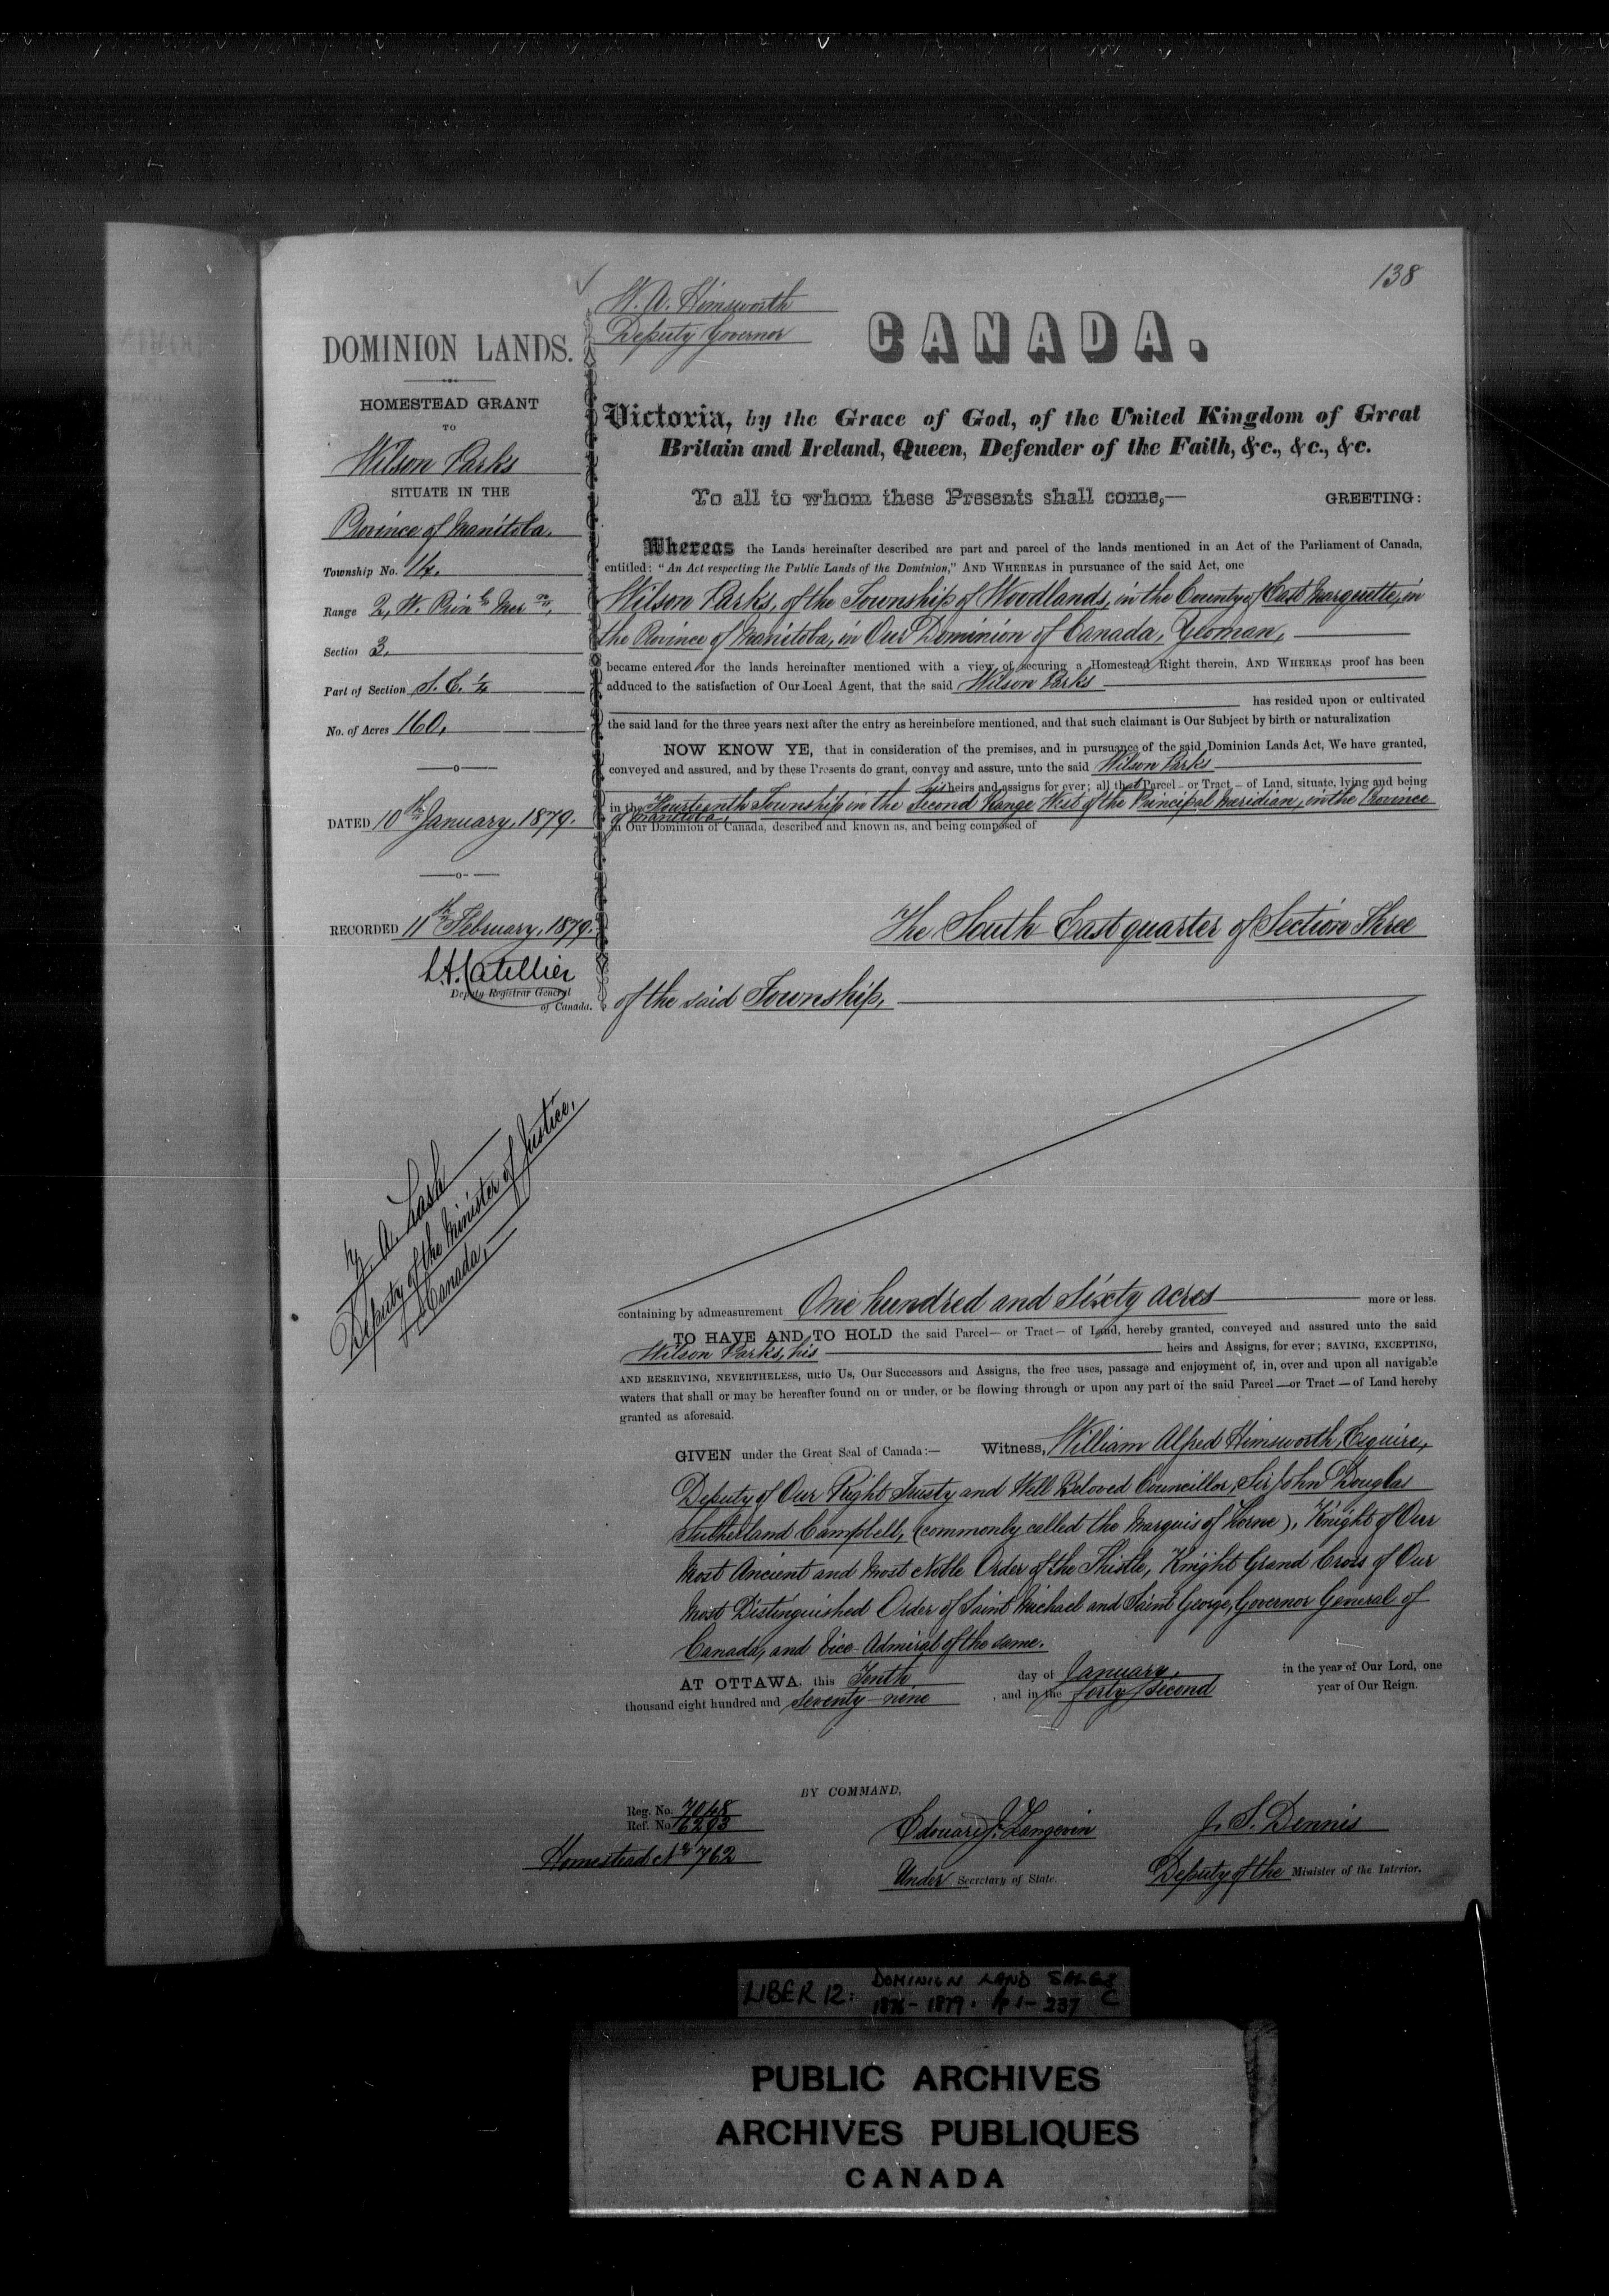 138
W. A. Himsworth
Deputy Governor
CANADA.
DOMINION LANDS.
HOMESTEAD GRANT
TO
Wilson Parks
SITUATE IN THE
Province of Manitoba.
Township No. 14.
Range 2, W. Prin'l Mer'n.
Section 3.
Part of Section S. E. 1/4
No. of Acres 160.
DATED 10th January, 1879.
RECORDED 11th February, 1879.
L.A. Catellier
Deputy Registrar General
of Canada.
Z. A. Lash
Deputy of the Minister of Justice,
Canada,
Victoria, by the Grace of God, of the United Kingdom of Great
Britain and Ireland, Queen, Defender of the Faith, &c., &c., &c.
To all to whom these Presents shall come,— GREETING:
Whereas the Lands hereinafter described are part and parcel of the lands mentioned in an Act of the Parliament of Canada,
entitled: "An Act respecting the Public Lands of the Dominion," AND WHEREAS in pursuance of the said Act, one
Wilson Parks, of the Township of Woodlands, in the County of East Marquette, in
the Province of Manitoba, in Our Dominion of Canada, Yeoman,
became entered for the lands hereinafter mentioned with a view of securing a Homestead Right therein, AND WHEREAS proof has been
adduced to the satisfaction of Our Local Agent, that the said Wilson Parks
has resided upon or cultivated
the said land for the three years next after the entry as hereinbefore mentioned, and that such claimant is Our Subject by birth or naturalization
NOW KNOW YE, that in consideration of the premises, and in pursuance of the said Dominion Lands Act, We have granted,
conveyed and assured, and by these Presents do grant, convey and assure, unto the said Wilson Parks
his heirs and assigns for ever; all that Parcel — or Tract — of Land, situate, lying and being
in the Fourteenth Township in the Second Range West of the Principal Meridian, in the Province
of Manitoba,
in Our Dominion of Canada, described and known as, and being composed of
The South East quarter of Section Three
of the said Township,
containing by admeasurement One hundred and Sixty acres more or less.
TO HAVE AND TO HOLD the said Parcel — or Tract — of Land, hereby granted, conveyed and assured unto the said
Wilson Parks, his heirs and Assigns, for ever; SAVING, EXCEPTING,
AND RESERVING, NEVERTHELESS, unto Us, Our Successors and Assigns, the free uses, passage and enjoyment of, in, over and upon all navigable
waters that shall or may be hereafter found on or under, or be flowing through or upon any part of the said Parcel — or Tract — of Land hereby
granted as aforesaid.
GIVEN under the Great Seal of Canada:— Witness, William Alfred Himsworth, Esquire,
Deputy of Our Right Trusty and Well Beloved Councillor, Sir John Douglas
Sutherland Campbell, (commonly called the Marquis of Lorne), Knight of Our
Most Ancient and Most Noble Order of the Thistle, Knight Grand Cross of Our
Most Distinguished Order of Saint Michael and Saint George, Governor General of
Canada, and Vice-Admiral of the same.
AT OTTAWA, this Tenth day of January, in the year of Our Lord, one
thousand eight hundred and seventy-nine, and in the forty second year of Our Reign.
BY COMMAND,
Reg. No. 7048
Ref. No 16293
Homestead No 762
Edouard J. Langevin
Under Secretary of State.
J. S. Dennis
Deputy of the Minister of the Interior.
LIBER 12: DOMINION LAND SALES
1878-1879. pp 1-237 C
PUBLIC ARCHIVES
ARCHIVES PUBLIQUES
CANADA